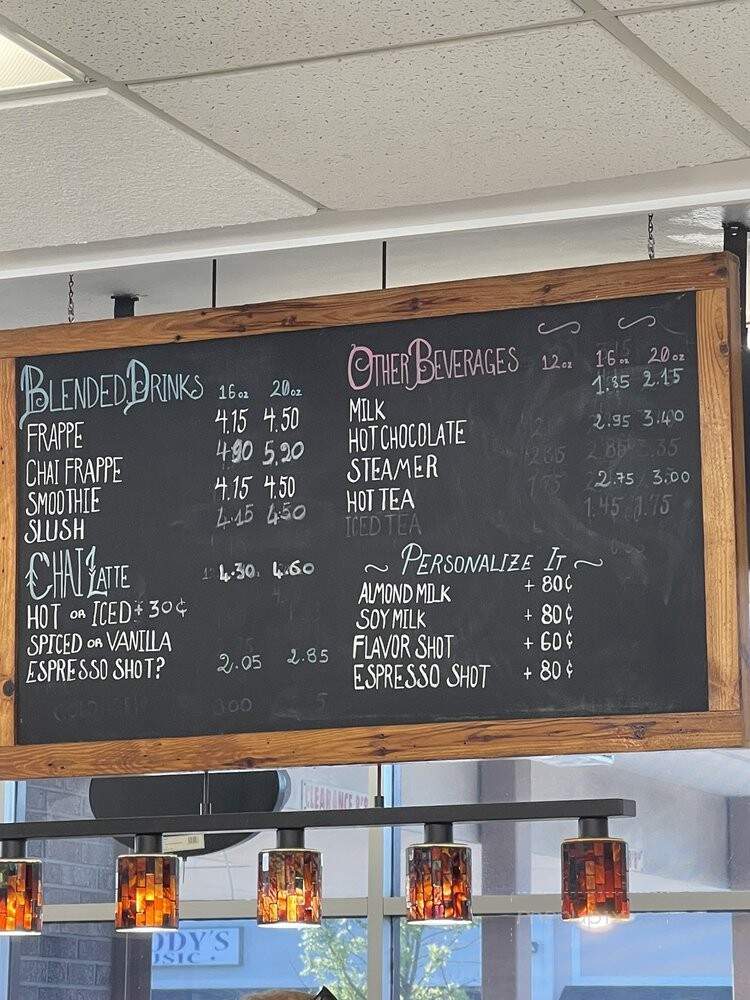 BLENDED DRINKS 16oz 20oz
FRAPPE 4.15 4.50
CHAI FRAPPE 4.90 5.20
SMOOTHIE 4.15 4.50
SLUSH 4.15 4.50
CHAI LATTE 4.30 4.60
HOT OR ICED + 30¢
SPICED OR VANILLA
ESPRESSO SHOT? 2.05 2.85
OTHER BEVERAGES 12oz 16oz 20oz
MILK 1.85 2.15
HOT CHOCOLATE 2.95 3.40
STEAMER
HOT TEA 2.75 3.00
ICED TEA 1.45 1.75
~ PERSONALIZE IT ~
ALMOND MILK + 80¢
SOY MILK + 80¢
FLAVOR SHOT + 60¢
ESPRESSO SHOT + 80¢
CLEARANCE